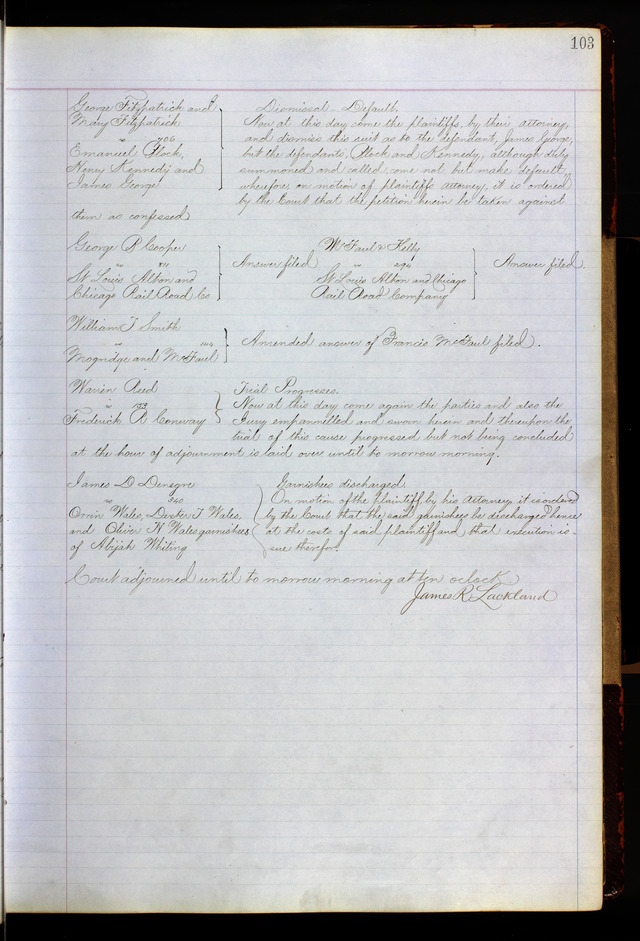 103
George Fitzpatrick and
Mary Fitzpatrick
vs 706
Emanuel Block,
Henry Kennedy and
James George
Dismissal - Default.
Now at this day come the plaintiffs, by their attorney,
and dismiss this suit as to the defendant, James George,
but the defendants, Block and Kennedy, although duly
summoned and called, come not but make default,
wherefore, on motion of plaintiffs attorney, it is ordered
by the Court that the petition herein be taken against
them as confessed
George R Cooper
vs
St Louis Alton and
Chicago Rail Road Co
Answer filed
McFaul & Kelly
vs 294
St Louis Alton and Chicago
Rail Road Company
Answer filed.
William T Smith
vs
Mogridge and McFaul
Amended answer of Francis McFaul filed.
Warren Reed
vs
Frederick R Conway
Trial Progresses.
Now at this day come again the parties and also the
Jury empannelled and sworn herein and thereupon the
trial of this cause progressed but not being concluded
at the hour of adjournment is laid over until to morrow morning.
James D Denegre
vs 340
Orrin Wales, Dexter T Wales,
and Oliver H Wales garnishees
of Abijah Whiting
Garnishees discharged.
On motion of the Plaintiff, by his Attorney, it is ordered
by the Court that the said garnishees be discharged hence
at the costs of said plaintiff and that execution is-
sue therefor.
Court adjourned until to morrow morning at ten oclock
James R. Lackland